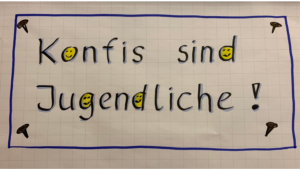 Konfis sind
Jugendliche!